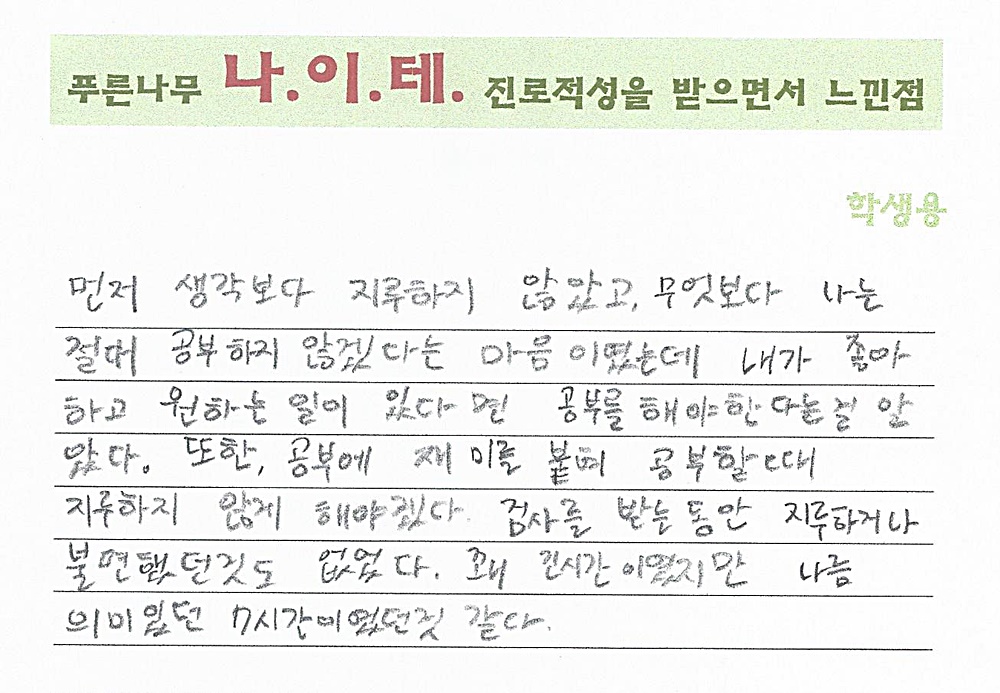 푸른나무 나.이.테. 진로적성을 받으면서 느낀점
학생용
먼저 생각보다 지루하지 않았고, 무엇보다 나는
절때 공부하지 않겠다는 마음이였는데 내가 좋아
하고 원하는 일이 있다면 공부를 해야한다는걸 알
았다. 또한, 공부에 재미를 붙여 공부할때
지루하지 않게 해야겠다. 검사를 받는동안 지루하거나
불편했던것도 없었다. 꽤 긴시간이였지만 나름
의미있던 7시간이였던것 같다.